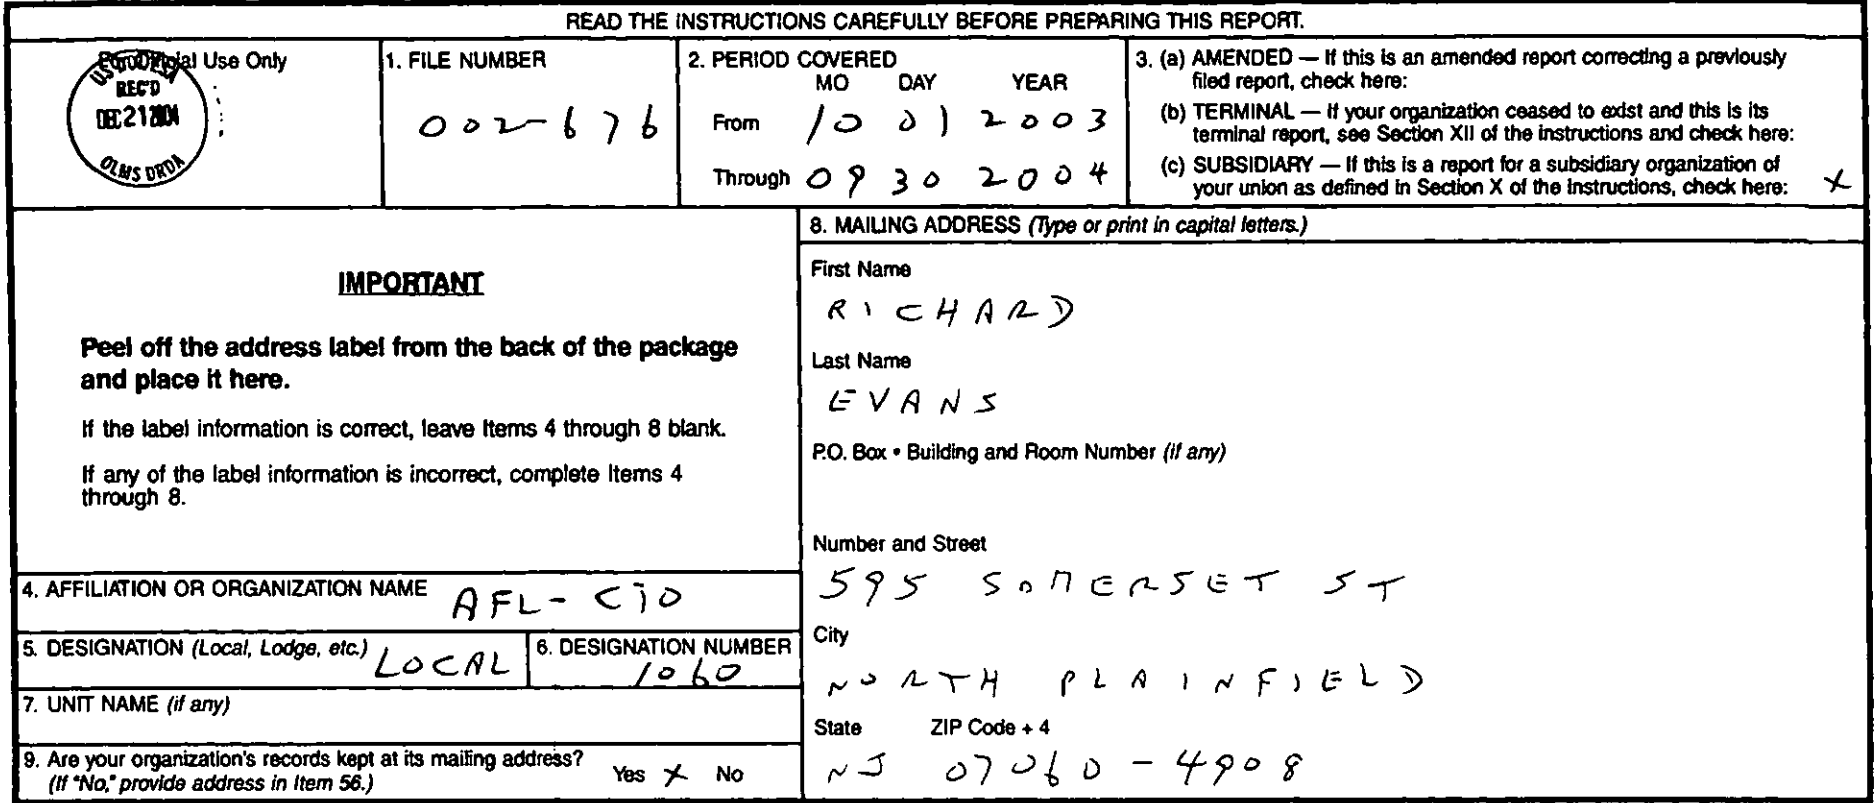 READ THE INSTRUCTIONS CAREFULLY BEFORE PREPARING THIS REPORT.
Use Only
REC'D
DEC 21 2004
OLMS DRDA
1. FILE NUMBER
002-676
2. PERIOD COVERED
MO DAY YEAR
From 10 01 2003
Through 09 30 2004
3. (a) AMENDED — If this is an amended report correcting a previously
filed report, check here:
(b) TERMINAL — If your organization ceased to exist and this is its
terminal report, see Section XII of the instructions and check here:
(c) SUBSIDIARY — If this is a report for a subsidiary organization of
your union as defined in Section X of the instructions, check here: X
IMPORTANT
Peel off the address label from the back of the package
and place it here.
If the label information is correct, leave Items 4 through 8 blank.
If any of the label information is incorrect, complete Items 4
through 8.
4. AFFILIATION OR ORGANIZATION NAME AFL-CIO
5. DESIGNATION (Local, Lodge, etc.) LOCAL
6. DESIGNATION NUMBER
1060
7. UNIT NAME (if any)
9. Are your organization's records kept at its mailing address?
(If "No," provide address in Item 56.) Yes X No
8. MAILING ADDRESS (Type or print in capital letters.)
First Name
RICHARD
Last Name
EVANS
P.O. Box • Building and Room Number (if any)
Number and Street
595 SOMERSET ST
City
NORTH PLAINFIELD
State ZIP Code + 4
NJ 07060-4908